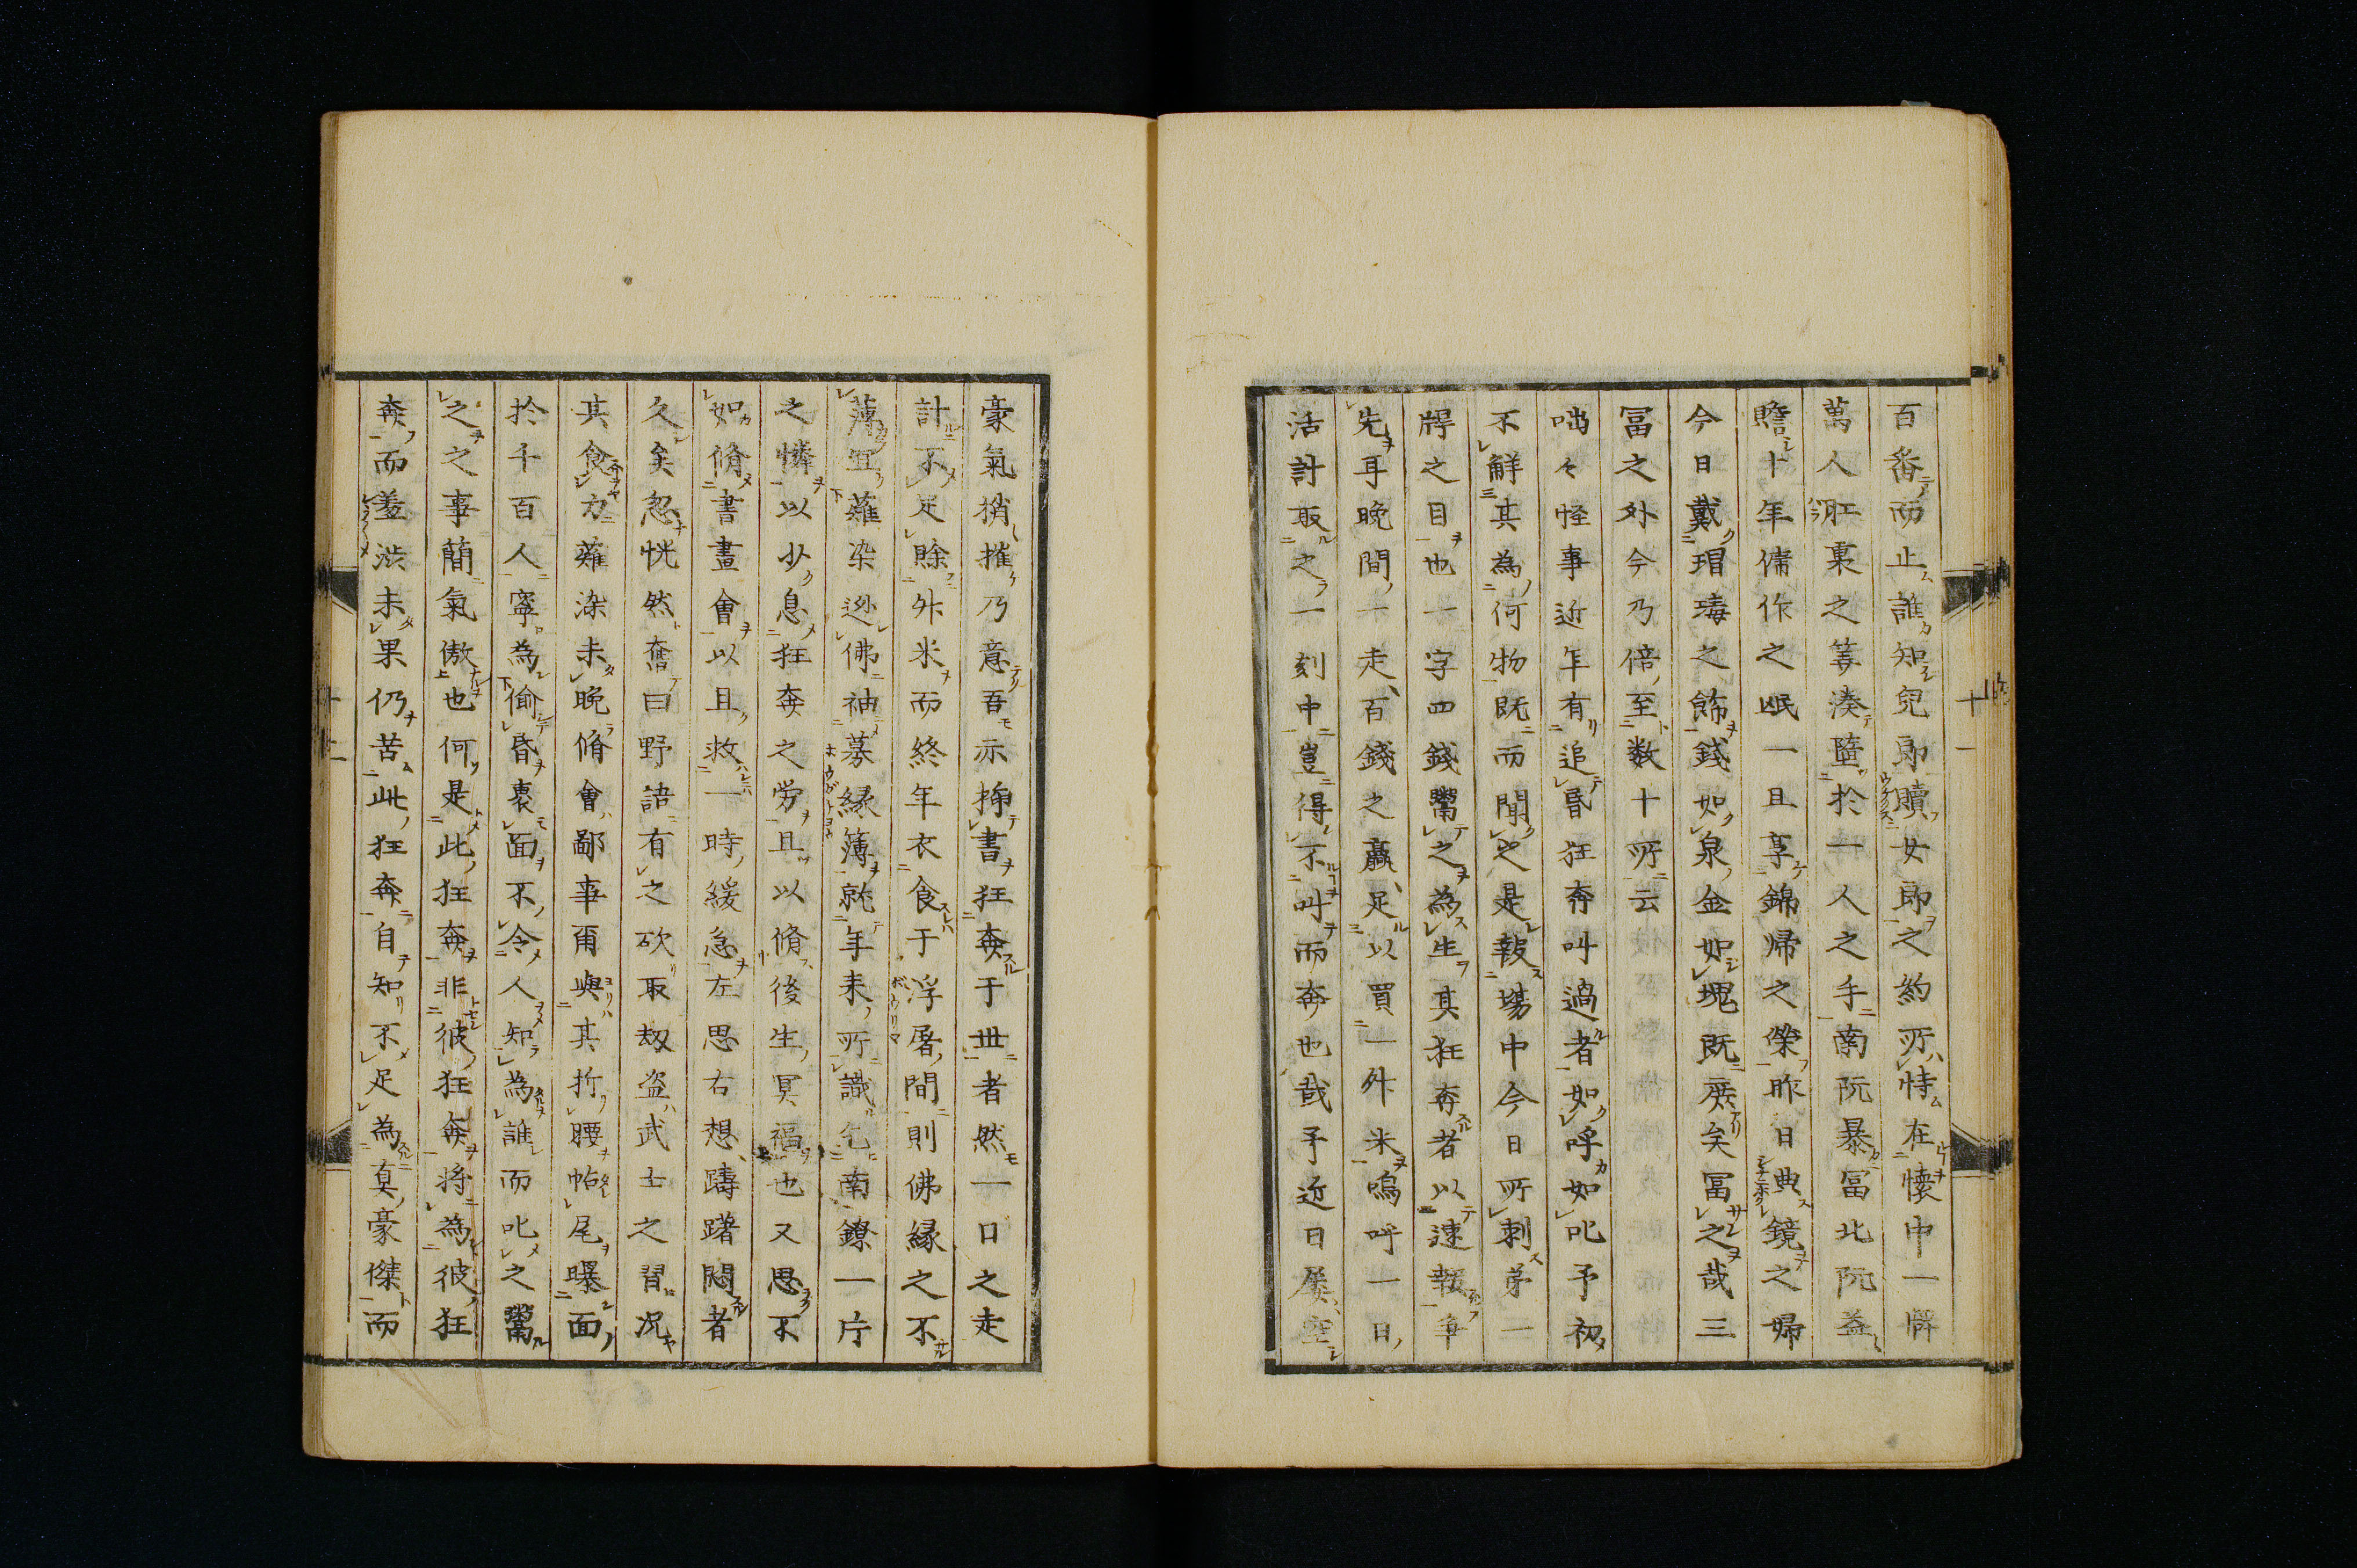 百番而止誰知兒郎贖女郎之約所恃在懐中一牌
萬人肛裏之筭湊墮於一人之手南阮暴冨北阮益
贍十年傭作之氓一旦享錦帰之榮昨日典鏡之婦
今日戴瑁瑇之飾錢如泉金如塊既庶矣冨之哉三
冨之外今乃倍至数十所云
咄々怪事近年有追昏狂奔叫過者如呼如叱予初
不解其為何物既而聞之是報場中今日所刺第一
牌之目也一字四錢鬻之為生其狂奔者以速報争
先耳晩間一走百錢之贏足以買一舛米嗚呼一日
活計取之一刻中豈得不叫而奔也哉予近日屡空
豪氣稍摧乃意吾示揄書狂奔于世者然一口之走
計不足賒舛米而終年衣食于浮屠間則佛縁之不
薄宜薙染逃佛袖募縁簿就年来所識乞南鐐一片
之憐以少息狂奔之労且以脩後生冥福也又思不
如脩書畫會以且救一時緩急左思右想躊躇悶者
久矣忽恍然奮曰野語有之砍取刼盗武士之習况
其食力薙染未晩脩會鄙事爾與其折腰帖尾曝面
於千百人寧為偷昏裹面不令人知為誰而叱之鬻
之之事簡氣傲也何是此狂奔非彼狂奔将為彼狂
奔而羞渋未果仍苦此狂奔自知不足為真豪傑而